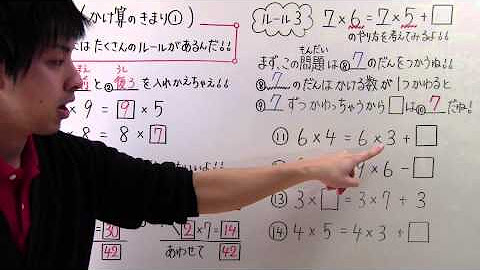 (かけ算のきまり①)
にはたくさんのルールがあるんだ!!
と②後うしろを入れかえちゃえ!!
× 9 = 9 × 5
× 8 = 8 × 7
30
42
2 × 7 = 14
あわせて 42
ルール3 7 × 6 = 7 × 5 + □
のやり方を考えてみるよ!!
まず、この問題もんだいは⑧7のだんをつかうね!!
⑧7のだんはかける数が1つかわると
⑨7ずつかわっちゃうから□は⑩7だね!
⑪ 6 × 4 = 6 × 3 + □
9 × 6 - □
⑬ 3 × □ = 3 × 7 + 3
⑭ 4 × 5 = 4 × 3 + □